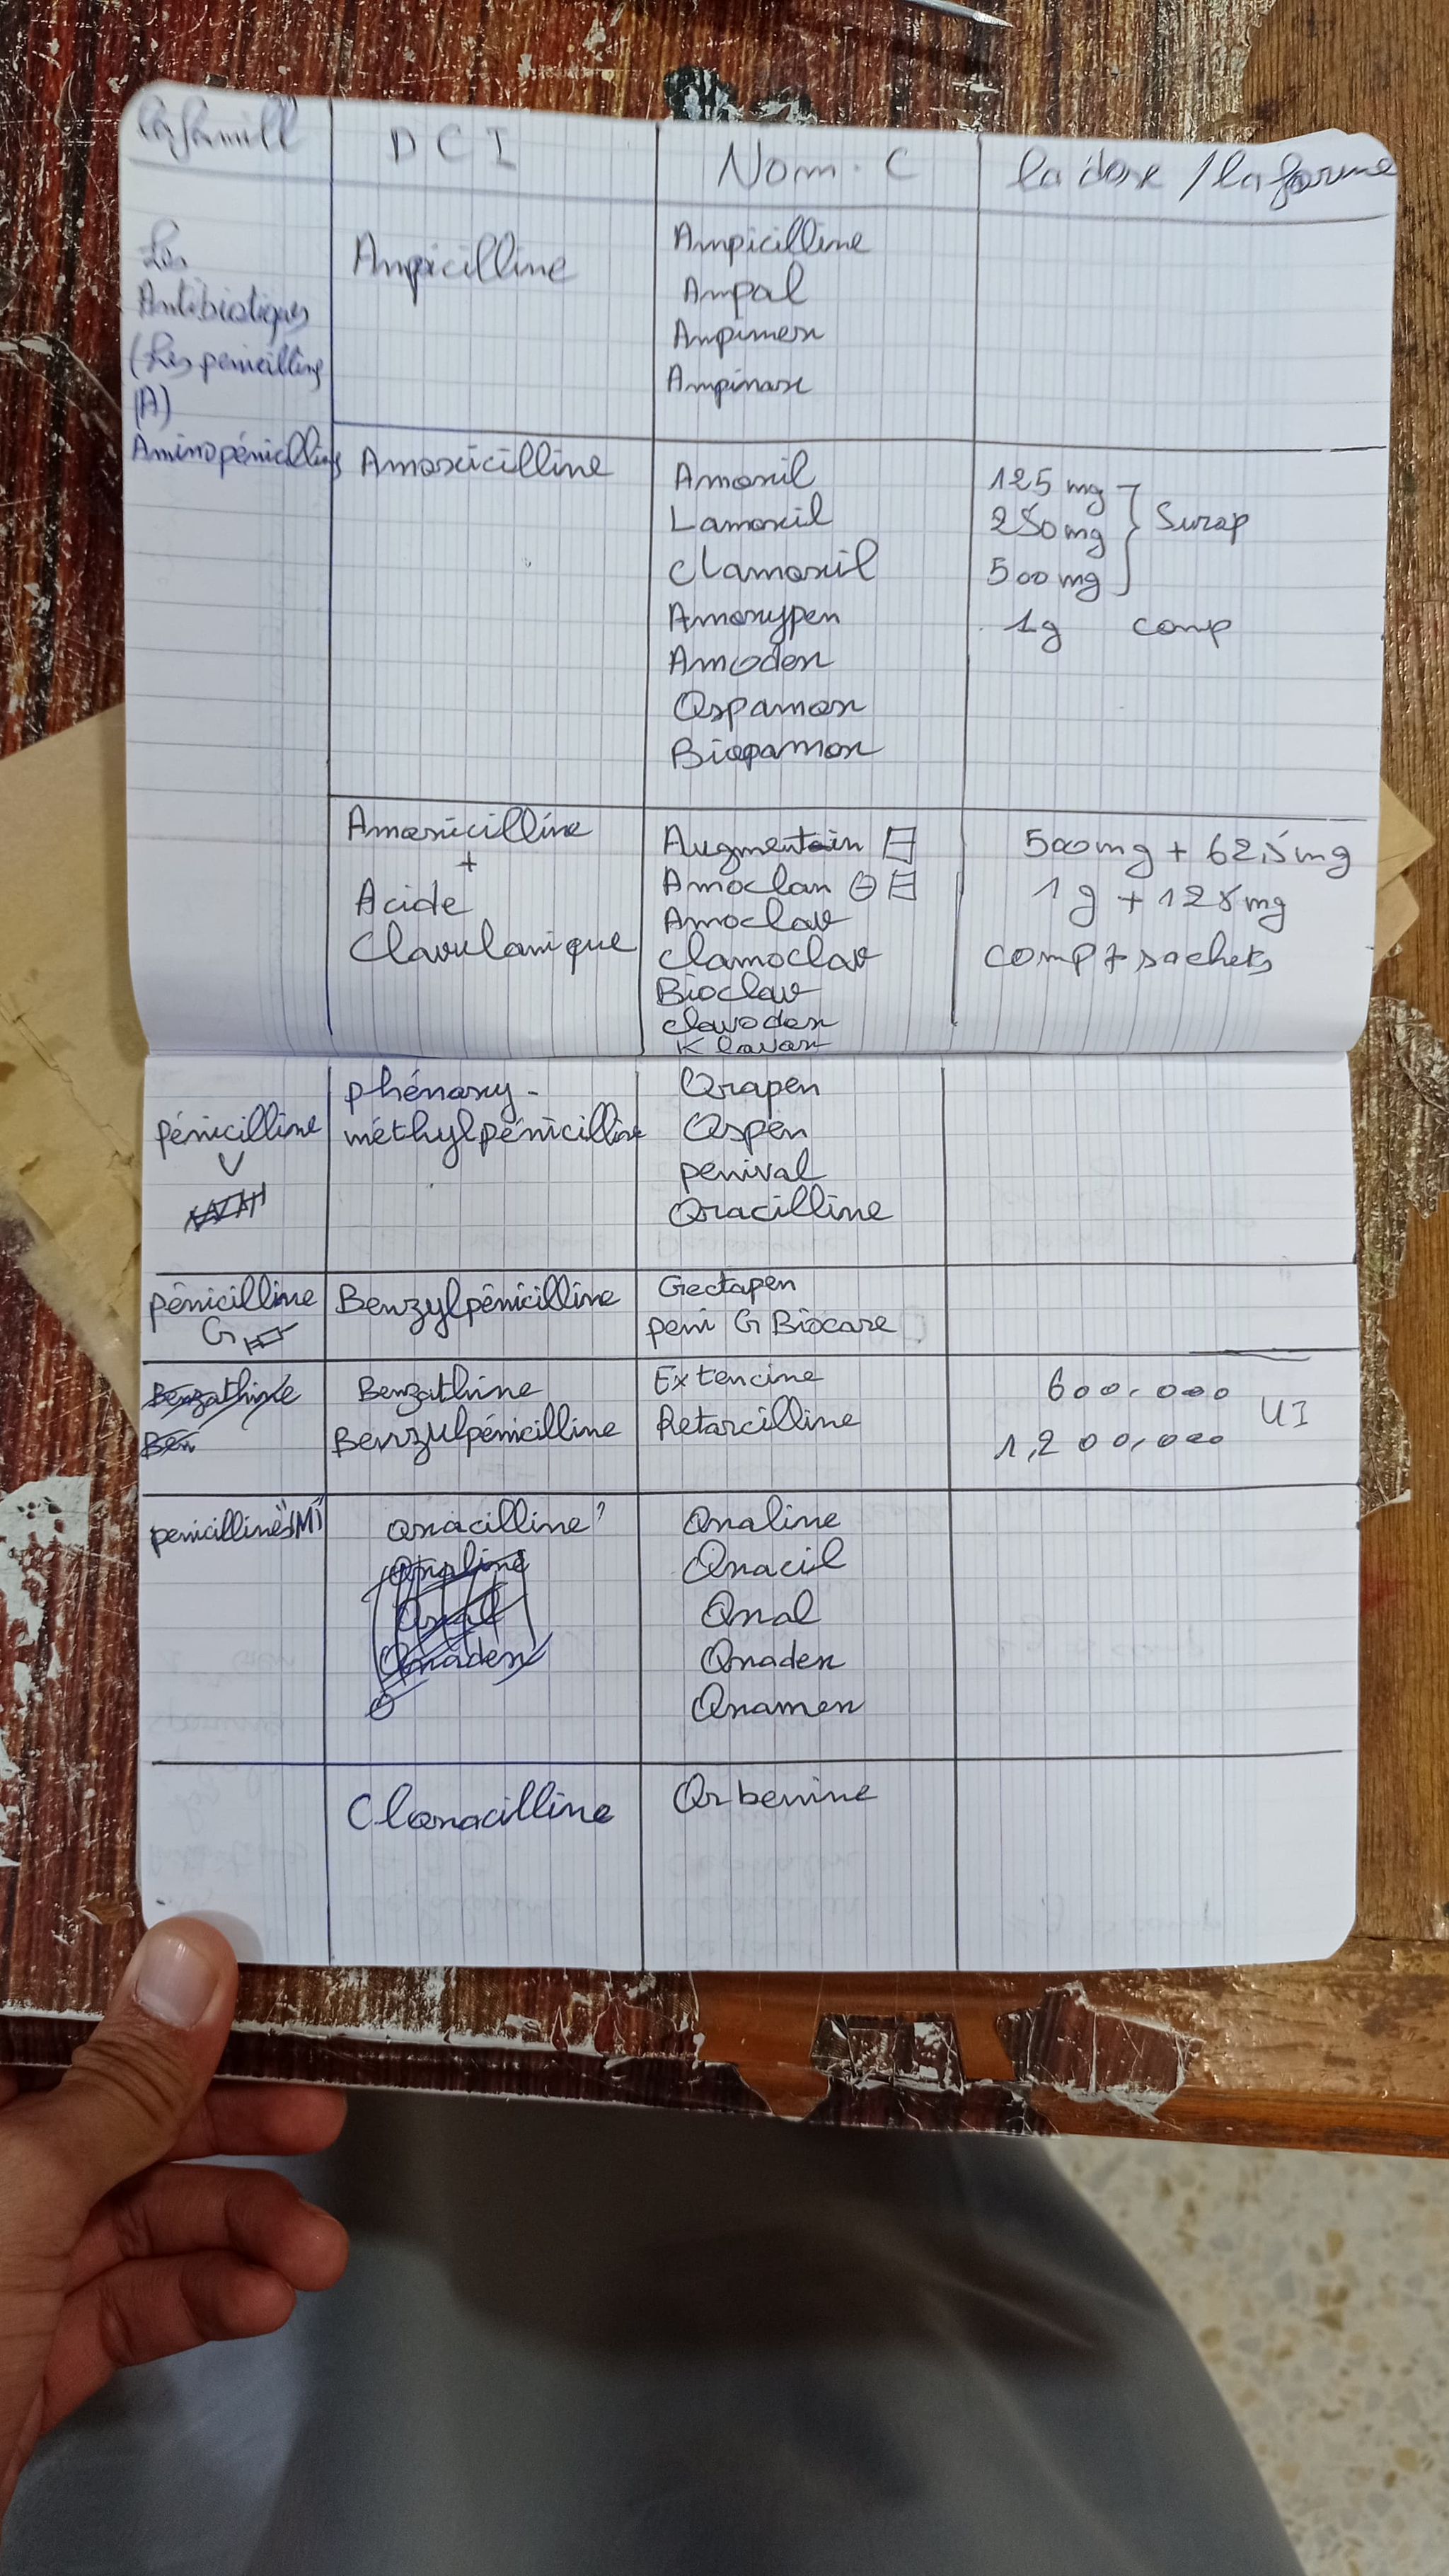 la famill
DCI
Nom. C
la dose / la forme
Les
Antibiotiques
(Les penicillines
(A)
Aminopénicillines
Ampicilline
Ampicilline
Ampal
Ampimex
Ampinax
Amoxicilline
Amoxil
Lamoxil
Clamoxil
Amoxypen
Amodex
Ospamox
Biopamox
125 mg
250 mg
500 mg
Sirop
1g comp
Amoxicilline
+
Acide
Clavulanique
Augmentin
Amoclan
Amoclav
Clamoclav
Bioclav
Clavodex
Klavax
500mg + 62,5mg
1g + 125mg
comp + sachets
pénicilline
V
phénoxy-
méthylpénicilline
Orapen
Ospen
penival
Oracilline
pénicilline
G
Benzylpénicilline
Gectapen
peni G Biocare
Benzathine
Ben
Benzathine
Benzulpénicilline
Extencine
Retarcilline
600.000
1,200,000
UI
penicillines "(M)"
oxacilline
Oxaline
Oxacil
Oxal
Oxadex
Oxamen
Cloxacilline
Orbenine